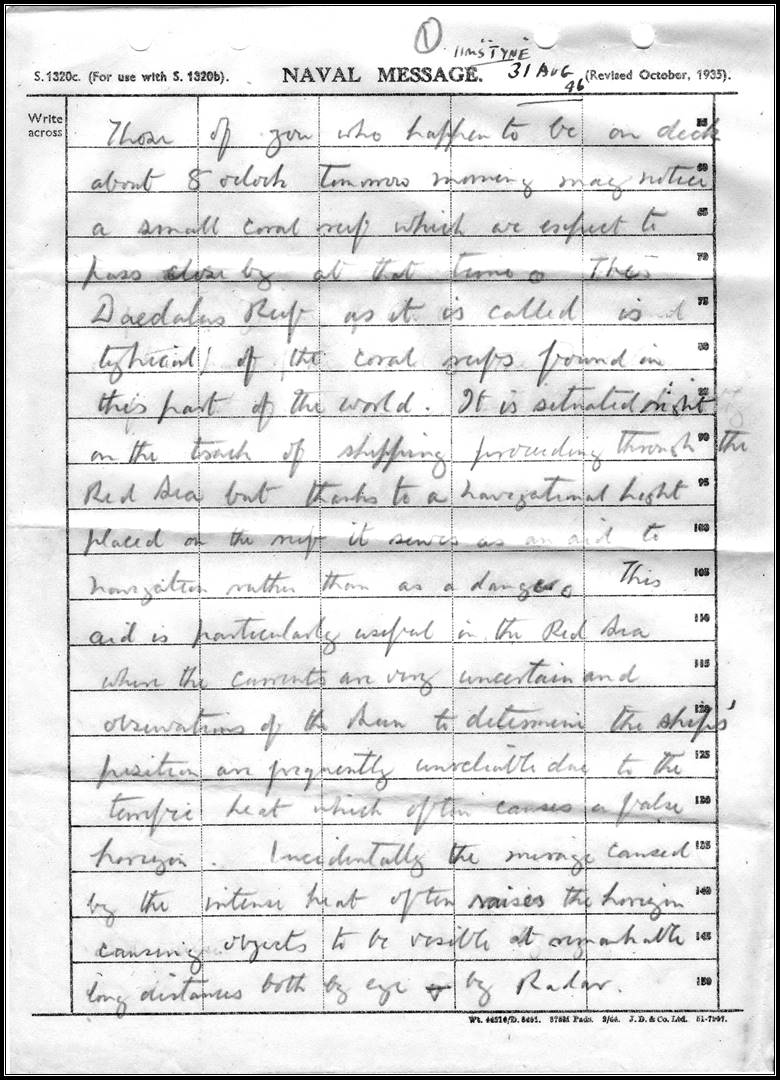 ①
"HMS TYNE"
31 AUG
46
S.1320c. (For use with S. 1320b). NAVAL MESSAGE. (Revised October, 1935).
Write
across
Those of you who happen to be on deck 55
about 8 oclock tomorrow morning may notice 60
a small coral reef which we expect to 65
pass close by at that time. The 70
Daedalus Reef as it is called is 75
typical of the coral reefs found in 80
this part of the world. It is situated right 85
on the track of shipping proceeding through the 90
Red Sea but thanks to a navigational light 95
placed on the reef it serves as an aid to 100
navigation rather than as a danger. This 105
aid is particularly useful in the Red Sea 110
where the currents are very uncertain and 115
observations of the Sun to determine the ships' 120
position are frequently unreliable due to the 125
terrific heat which often causes a false 130
horizon. Incidentally the mirage caused 135
by the intense heat often raises the horizon 140
causing objects to be visible at remarkable 145
long distances both by eye & by Radar. 150
J. D. & Co. Ltd.